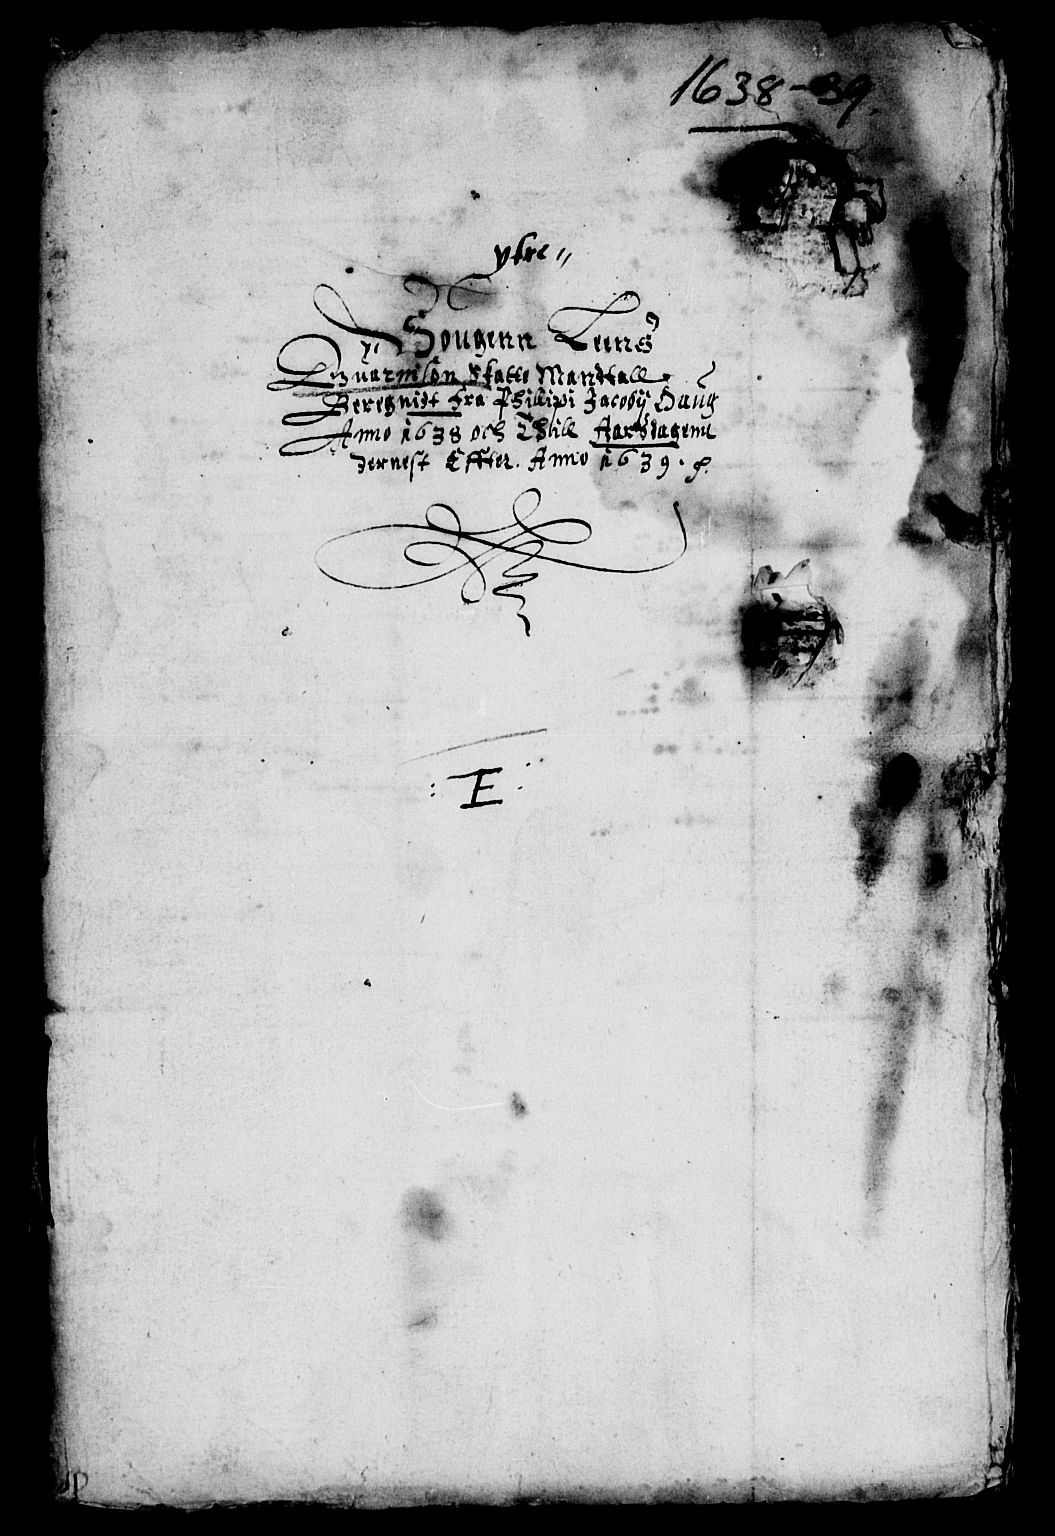 1638-39.
ytre "
Sougenn Leens
Quarnløn Skatte Mandtall
Beregnidt fra Phillipi Jacobij Daug
Anno 1638 och Thill Aarsdagenn
dernest Effter. Anno 1639.
: E :